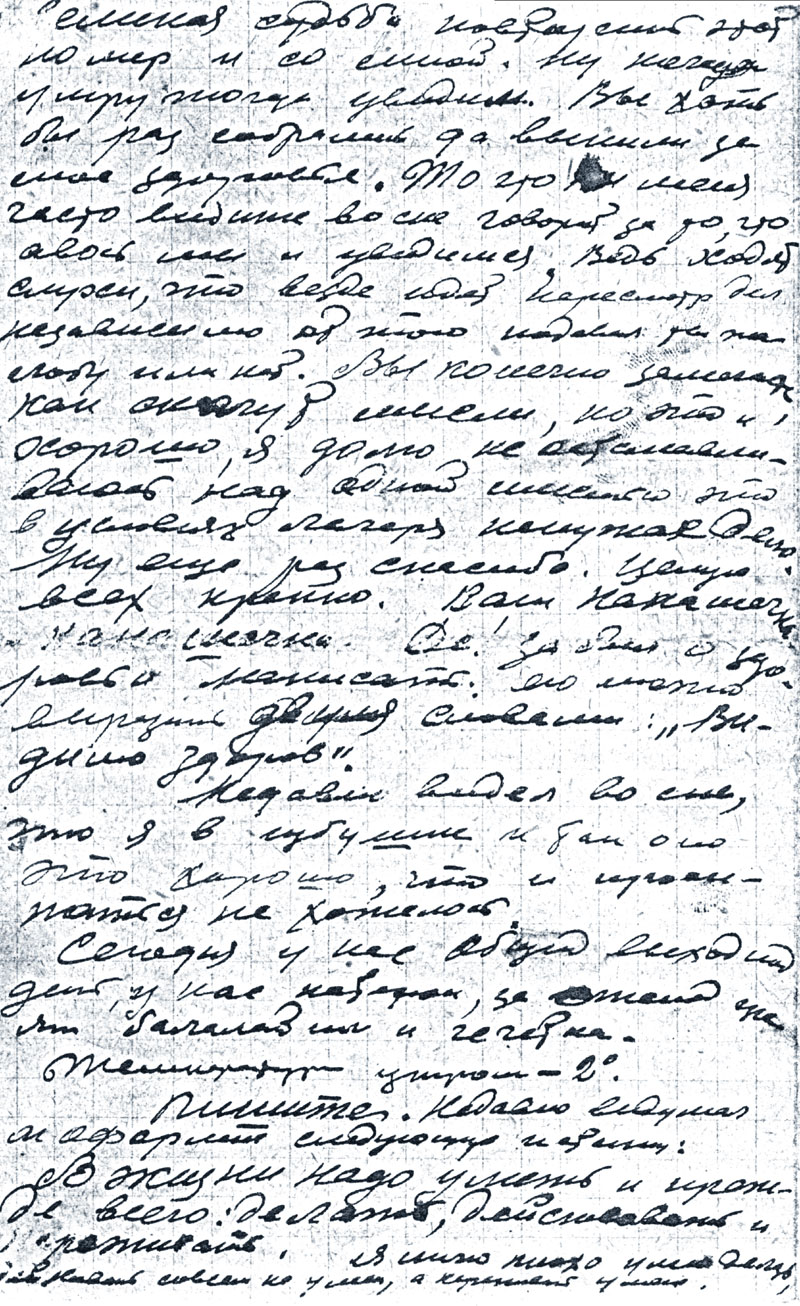 судьба повторит этот
номер и со мной. Ну когда
умру тогда увидим. Вы хоть
бы раз собрались да выпили за
мое здоровье. То что меня
часто видите во сне говорит за то, что
авось мы и увидимся. Ведь ходят
слухи, что везде идет пересмотр дел
независимо от того подавал ты жа-
лобу или нет. Вы конечно замечаете
как скачут мысли, но это и
хорошо, я долго не останавли-
ваюсь над одной мыслью это
в условиях лагеря ненужное дело.
Ну еще раз спасибо. Целую
всех крепко. Ваш Какашечка.
Какашечка. Да! Забыл о здо-
ровьи написать. Его можно
выразить двумя словами: „Ви-
димо здоров".
Недавно видел во сне,
что я в избушке и так оно
это хорошо, что и просы-
паться не хотелось.
Сегодня у нас общий выходной
день, у нас за стеной
балалайки и чечётка.
Температура утром – 2°.
Пишите. Недавно
следующую истину:
В жизни надо уметь и преж-
де всего: делать, действовать и
переживать. Я лично плохо умел делать,
совсем не умел, а переживать умел.